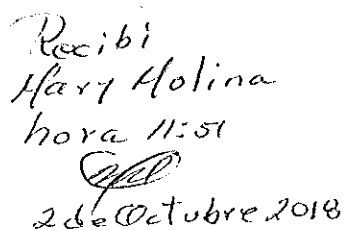 Recibi
Mary Molina
hora 11:51
2 de Octubre 2018